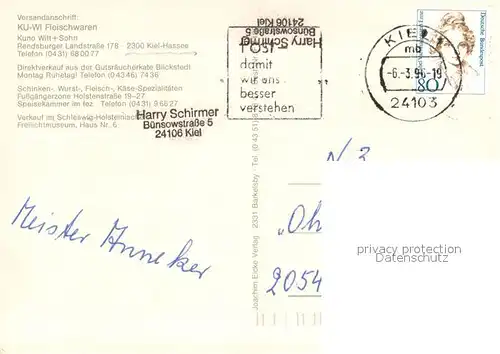 Versandanschrift:
KU-WI Fleischwaren
Kuno Wilt + Sohn
Rendsburger Landstraße 178 2300 Kiel-Hassee
Telefon (0431) 68 00 77
Direktverkauf aus der Gutsräucherkate Blickstedt
Montag Ruhetag! Telefon (0 43 46) 74 36
Schinken-, Wurst-, Fleisch-, Käse-Spezialitäten
Fußgängerzone Holstenstraße 19-27
Speisekammer im fez Telefon (0431) 9 65 27
Verkauf im Schleswig-Holsteinischen
Freilichtmuseum, Haus Nr. 6
Harry Schirmer
Bünsowstraße 5
24106 Kiel
Harry Schirmer
Bünsowstraße 5
24106 Kiel
damit
wir uns
besser
verstehen
KIEL 1
mb
-6.-3.96-19
24103
Deutsche Bundespost
80
N 2
Meister Anneker
„Oh
2054
Joachim Eicke Verlag 2331 Barkelsby · Tel. (0 43 51) 8
privacy protection
Datenschutz